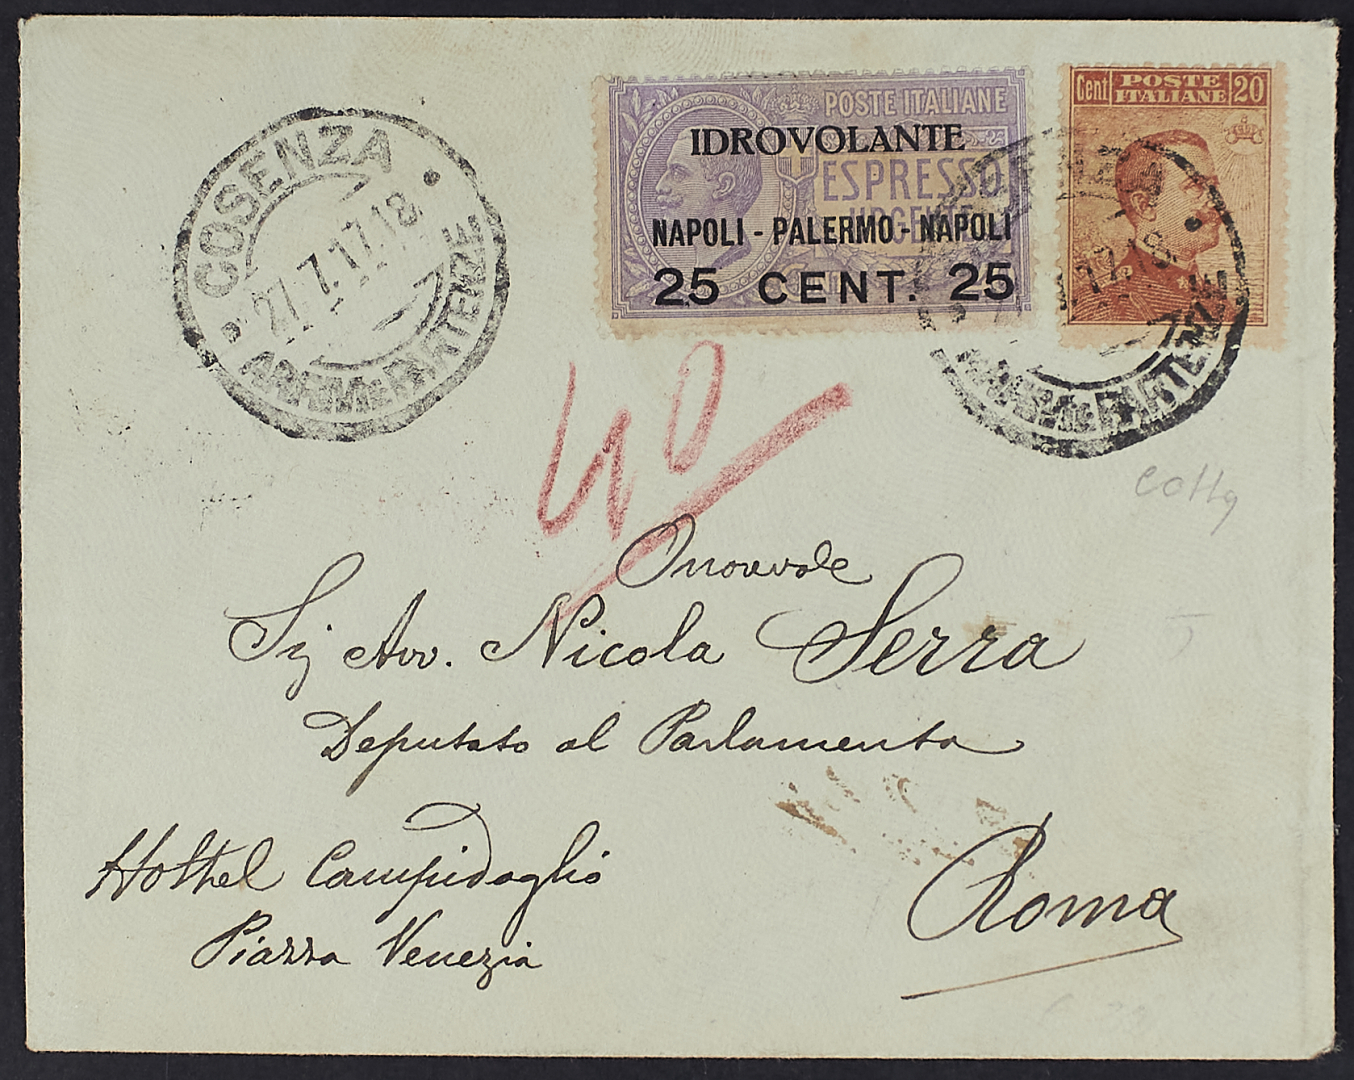 COSENZA
27.7.17.18
ARRIVI E PARTENZE
POSTE ITALIANE
IDROVOLANTE
ESPRESSO
URGENTE
NAPOLI - PALERMO - NAPOLI
25 CENT. 25
Cent POSTE ITALIANE 20
40
Onorevole
Sig Avv. Nicola Serra
Deputato al Parlamento
Hothel Campidoglio
Piazza Venezia
Roma